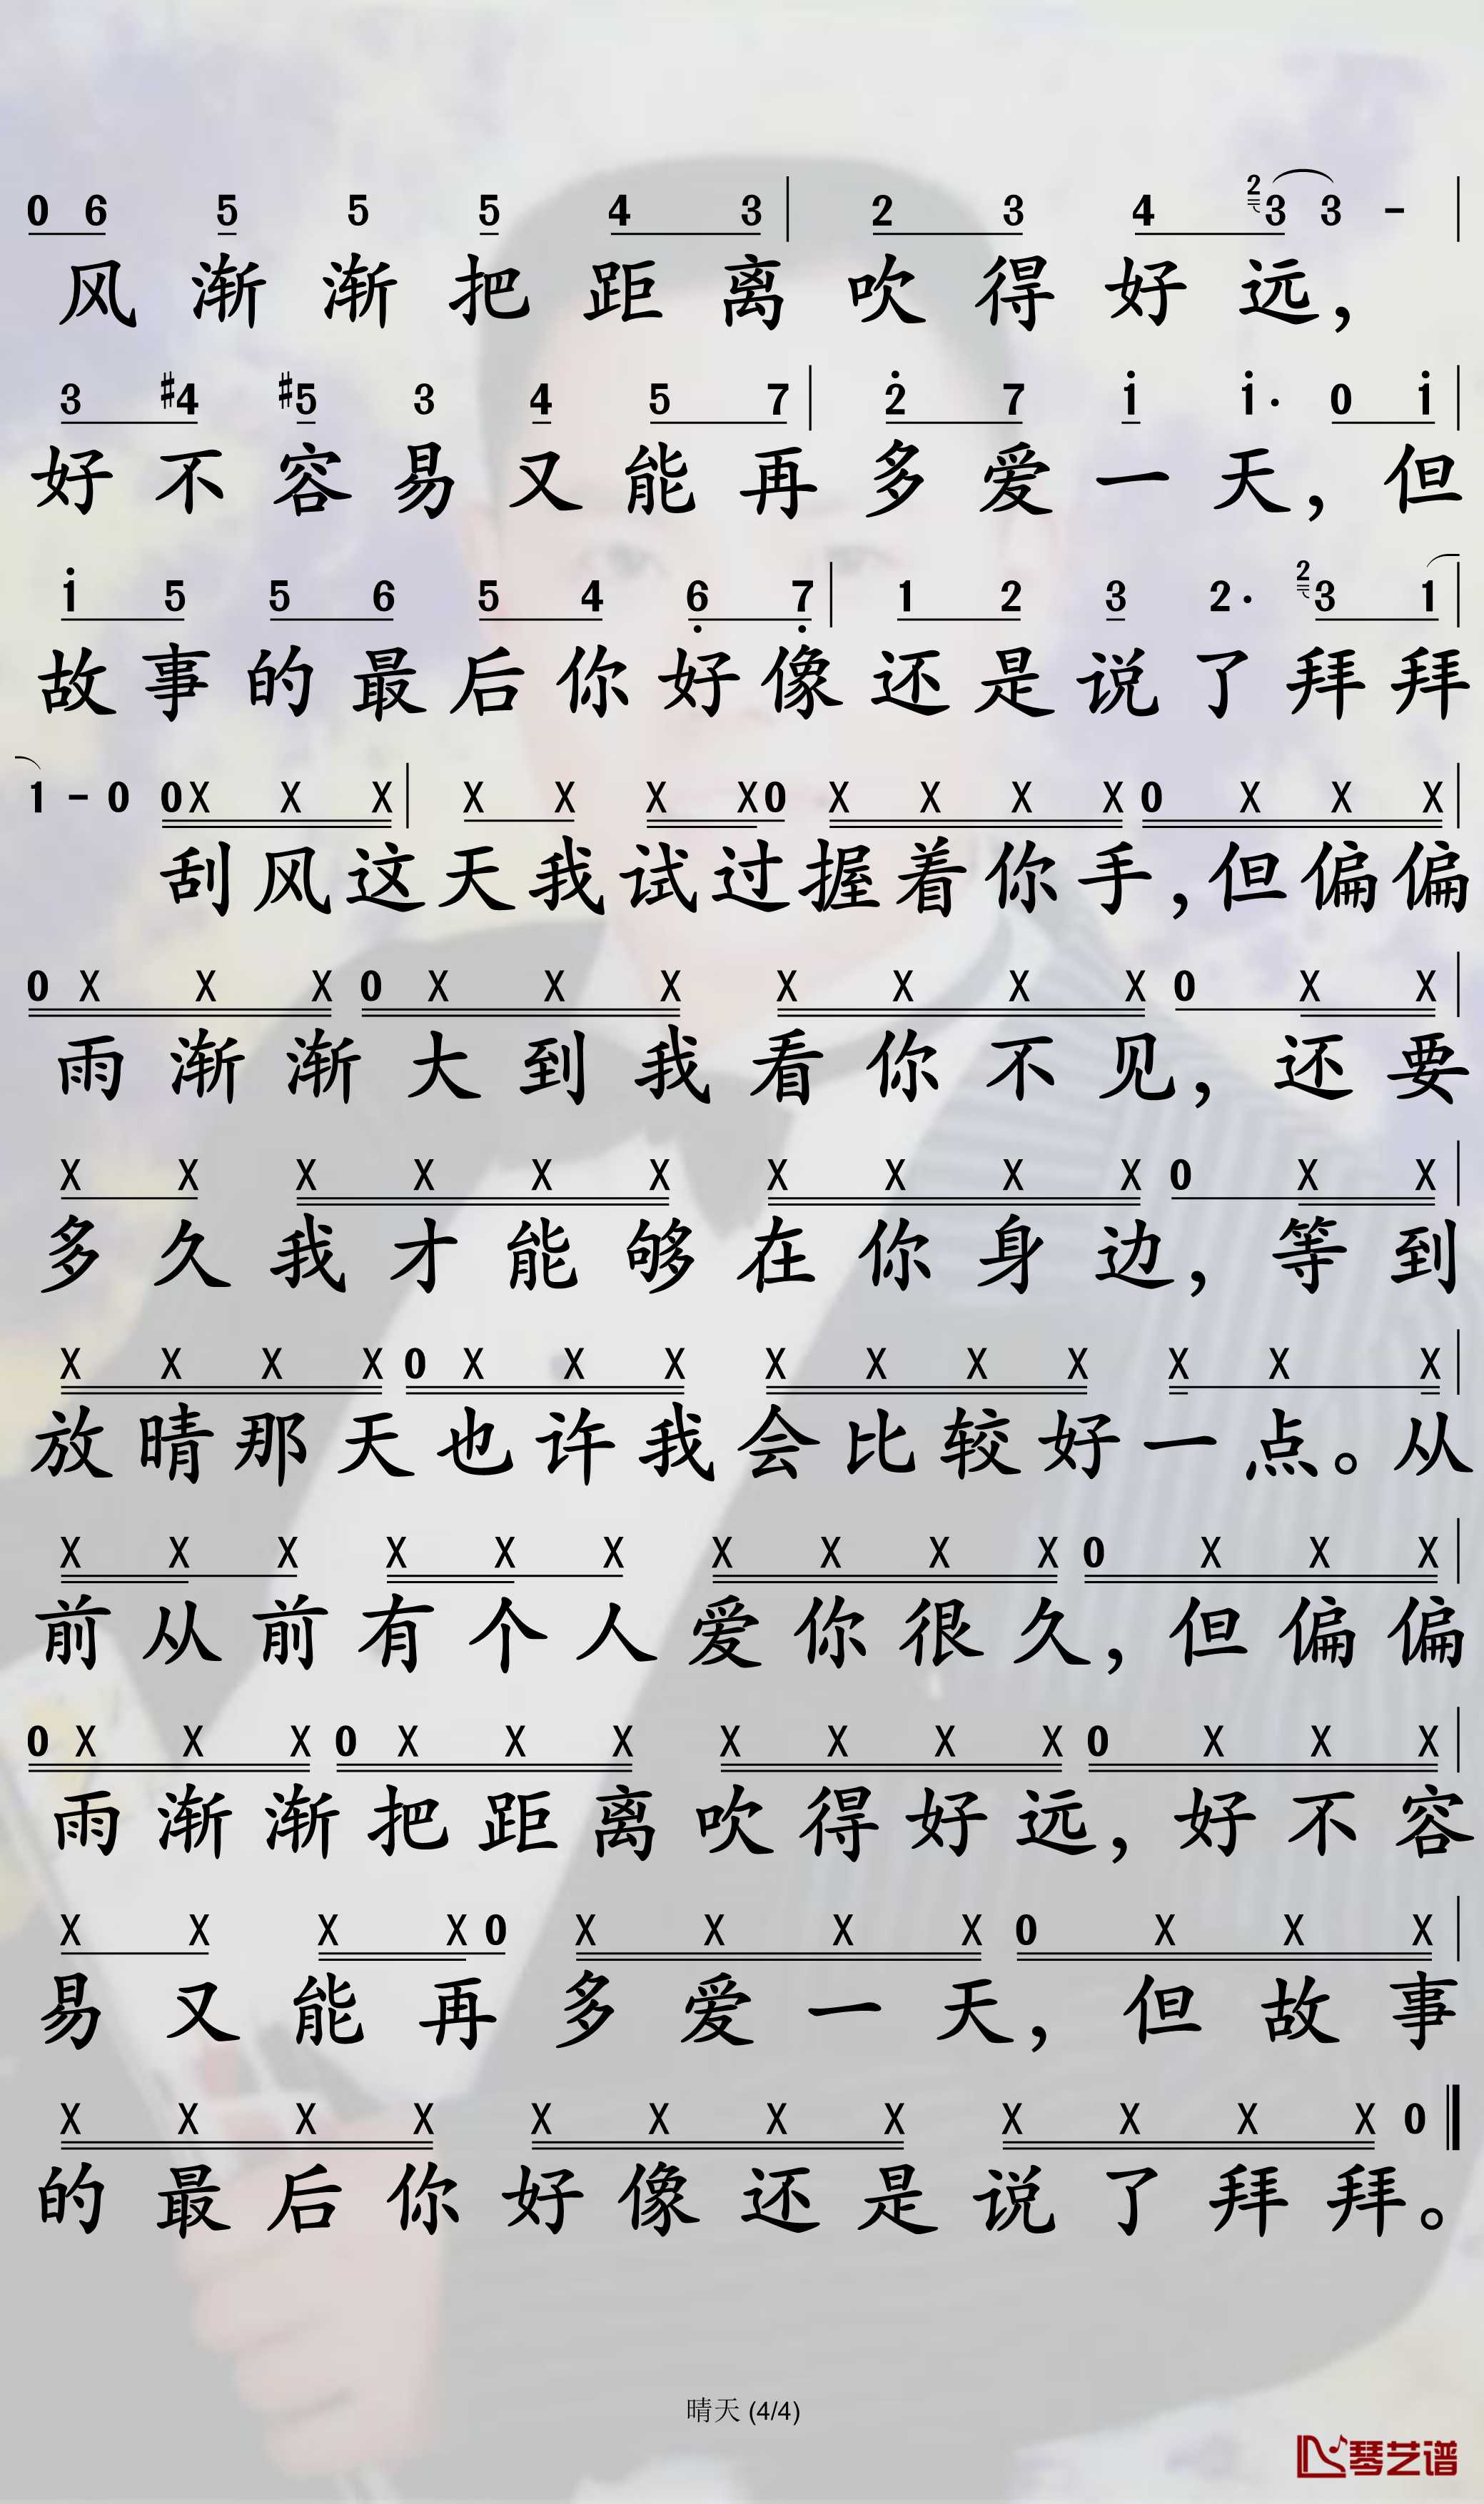 0 6 5 5 5 4 3 | 2 3 4 2 3 3 - |
风渐渐把距离吹得好远，
3 #4 #5 3 4 5 7 | 2̇ 7 1̇ 1̇· 0 1̇ |
好不容易又能再多爱一天，但
1̇ 5 5 6 5 4 6̣ 7̣ | 1 2 3 2· 2 3 1 |
故事的最后你好像还是说了拜拜
1 - 0 0 X X X | X X X X 0 X X X X 0 X X X |
刮风这天我试过握着你手，但偏偏
0 X X X 0 X X X X X X X 0 X X |
雨渐渐大到我看你不见，还要
X X X X X X X X X X 0 X X |
多久我才能够在你身边，等到
X X X X 0 X X X X X X X X X X |
放晴那天也许我会比较好一点。从
X X X X X X X X X X 0 X X X |
前从前有个人爱你很久，但偏偏
0 X X X 0 X X X X X X X 0 X X X |
雨渐渐把距离吹得好远，好不容
X X X X 0 X X X X 0 X X X |
易又能再多爱一天，但故事
X X X X X X X X X X X X 0
的最后你好像还是说了拜拜。
晴天 (4/4)
琴艺谱